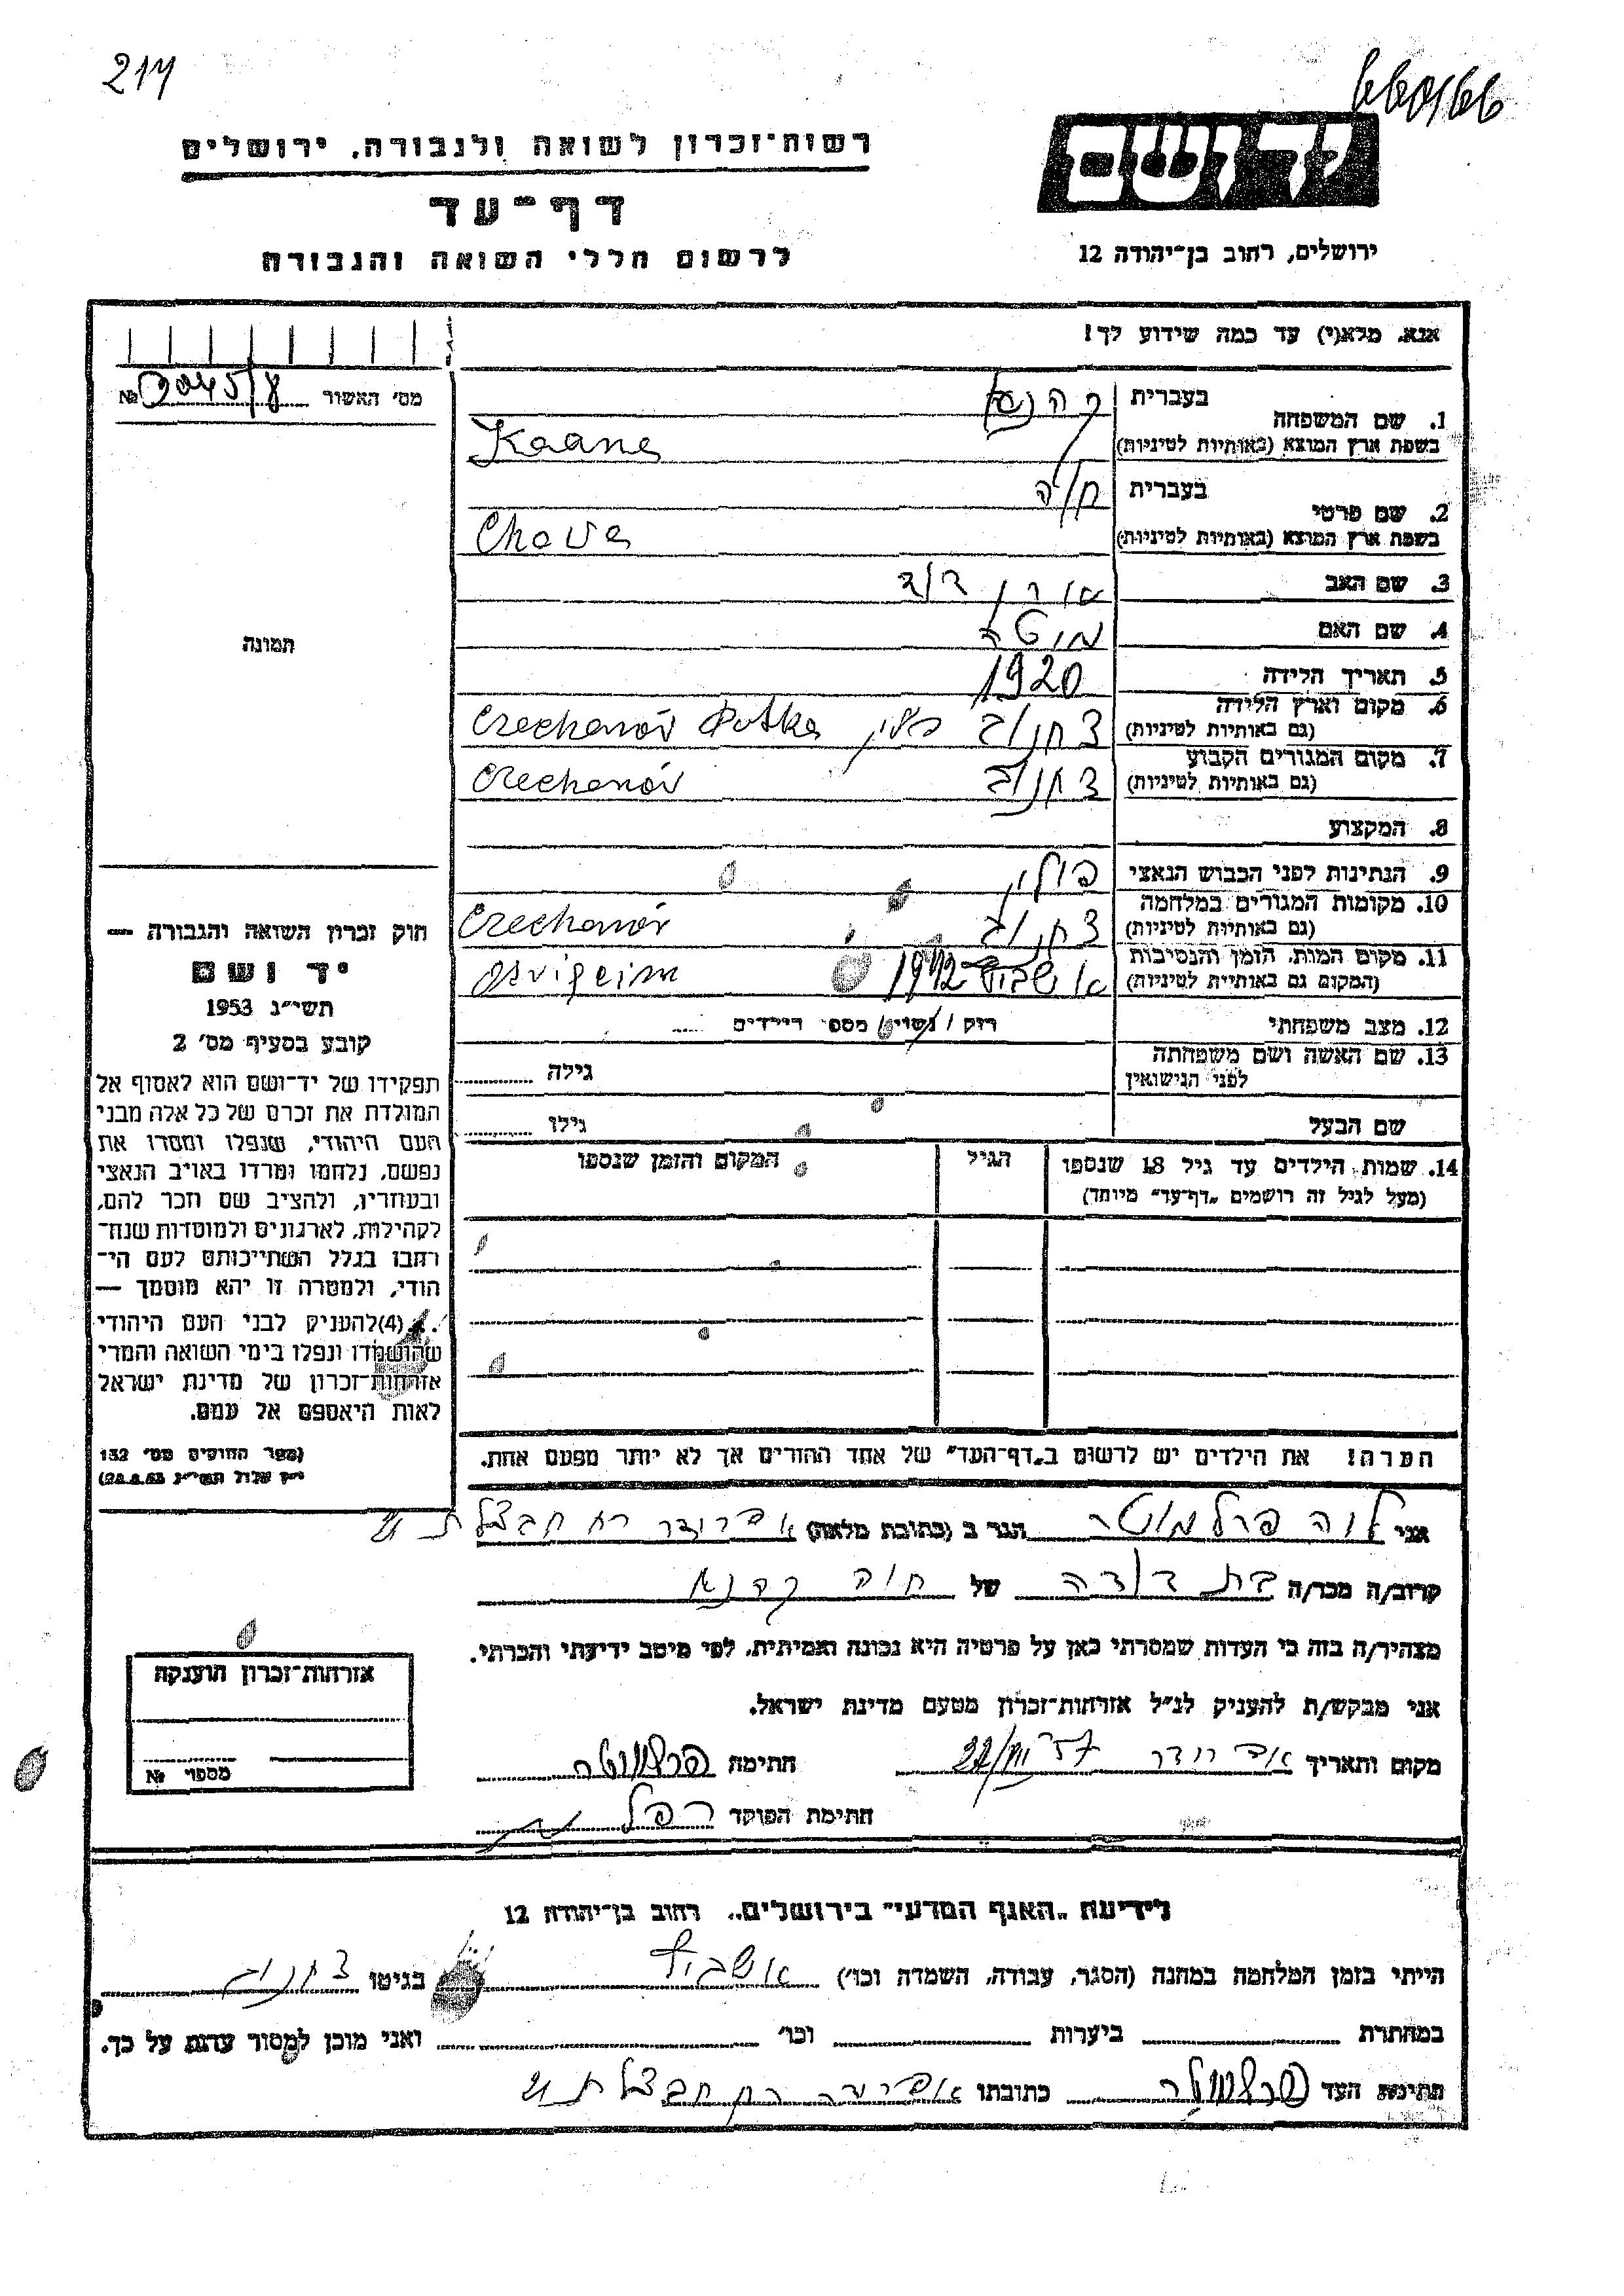 214
רשות־זכרון לשואה ולגבורה, ירושלים
דף־עד
לרשום חללי השואה והגבורה
יד ושם
ירושלים, רחוב בן־יהודה 12
אנא, מלא(י) עד כמה שידוע לך!
מס׳ האשור № 2045/8
1. שם המשפחה בעברית קהנא
בשפת ארץ המוצא (באותיות לטיניות) Kaane
2. שם פרטי בעברית חוה
בשפת ארץ המוצא (באותיות לטיניות) Chava
3. שם האב אהרן דוד
4. שם האם
5. תאריך הלידה 1920
6. מקום וארץ הלידה (גם באותיות לטיניות) צחנוב פולין Czechanów Polska
7. מקום המגורים הקבוע (גם באותיות לטיניות) צחנוב Czechanów
8. המקצוע
9. הנתינות לפני הכבוש הנאצי פולין
10. מקומות המגורים במלחמה (גם באותיות לטיניות) צחנוב Czechanów
11. מקום המות, הזמן והנסיבות (המקום גם באותיות לטיניות) אושביץ 1942
12. מצב משפחתי רווק / נשוי / מספר הילדים
13. שם האשה ושם משפחתה לפני הנישואין גילה
שם הבעל גילו
14. שמות הילדים עד גיל 18 שנספו
(מעל לגיל זה רושמים „דף־עד״ מיוחד)
הגיל
המקום והזמן שנספו
הערה! את הילדים יש לרשום ב„דף־העד״ של אחד ההורים אך לא יותר מפעם אחת.
תמונה
חוק זכרון השואה והגבורה —
יד ושם
תשי״ג 1953
קובע בסעיף מס׳ 2
תפקידו של יד־ושם הוא לאסוף אל
המולדת את זכרם של כל אלה מבני
העם היהודי, שנפלו ומסרו את
נפשם, נלחמו ומרדו באויב הנאצי
ובעוזריו, ולהציב שם וזכר להם,
לקהילות, לארגונים ולמוסדות שנח־
רבו בגלל השתייכותם לעם הי־
הודי, ולמטרה זו יהא מוסמך —
...(4) להעניק לבני העם היהודי
שהושמדו ונפלו בימי השואה והמרי
אזרחות־זכרון של מדינת ישראל
לאות היאספם אל עמם.
(ספר החוקים מס׳ 132
י״ז אלול תשי״ג 28.8.53)
אני לוה פרלמוטר הגר ב (כתובת מלאה) רח חבצלת
קרוב/ה מכר/ה בת דודה של חוה קהנא
מצהיר/ה בזה כי העדות שמסרתי כאן על פרטיה היא נכונה ואמיתית, לפי מיטב ידיעתי והכרתי.
אני מבקש/ת להעניק לנ״ל אזרחות־זכרון מטעם מדינת ישראל.
מקום ותאריך חתימה פרלמוטר
חתימת הפוקד
אזרחות־זכרון הוענקה
מספר №
לידיעת „האגף המדעי״ בירושלים, רחוב בן־יהודה 12
הייתי בזמן המלחמה במחנה (הסגר, עבודה, השמדה וכו׳) אושביץ בגיטו צחנוב
במחתרת ביערות וכו׳ ואני מוכן למסור עדות על כך.
חתימת העד פרלמוטר כתובתו רח חבצלת